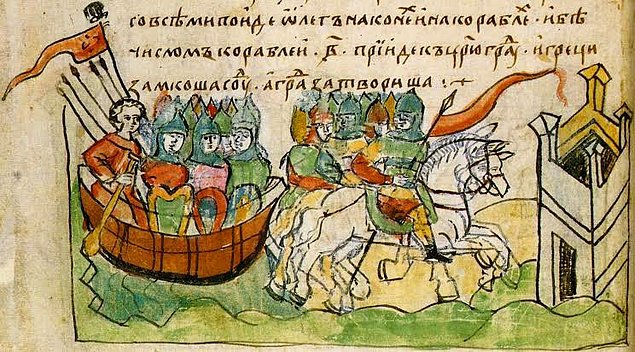 совсѣми поиде ѡлегъ на конеⷯ и на кораблеⷯ . и бѣ
числомъ кораблеи . ҂в҃ . прїиде къ цр҃югрⷣаⷹ . и греци
замкоша соуⷣ . а граⷣ затвориша : ~